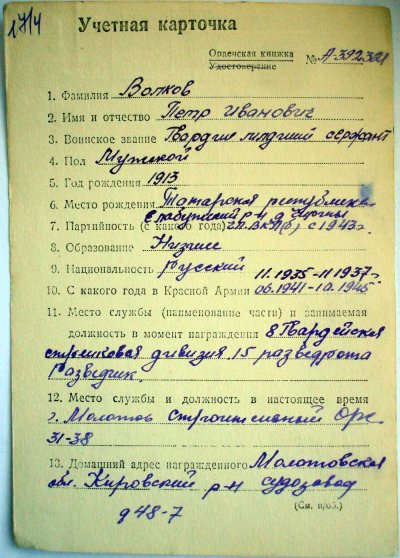 17/4
Учетная карточка
Орденская книжка
Удостоверение
№ А392321
1. Фамилия Волков
2. Имя и отчество Петр Иванович
3. Воинское звание Гвардии младший сержант
4. Пол Мужской
5. Год рождения 1913
6. Место рождения Татарская республика
Елабужский р-н д.
7. Партийность (с какого года) чл. ВКП(б) с 1943г.
8. Образование Низшее
9. Национальность Русский 11.1935-11.1937г
10. С какого года в Красной Армии 06.1941-10.1945
11. Место службы (наименование части) и занимаемая
должность в момент награждения 8 Гвардейская
стрелковая дивизия, 15 разведрота
Разведчик.
12. Место службы и должность в настоящее время
г. Молотов строительный
31-38
13. Домашний адрес награжденного Молотовская
обл. Кировский р-н судозавод
(См. н/об.)
д 48-7